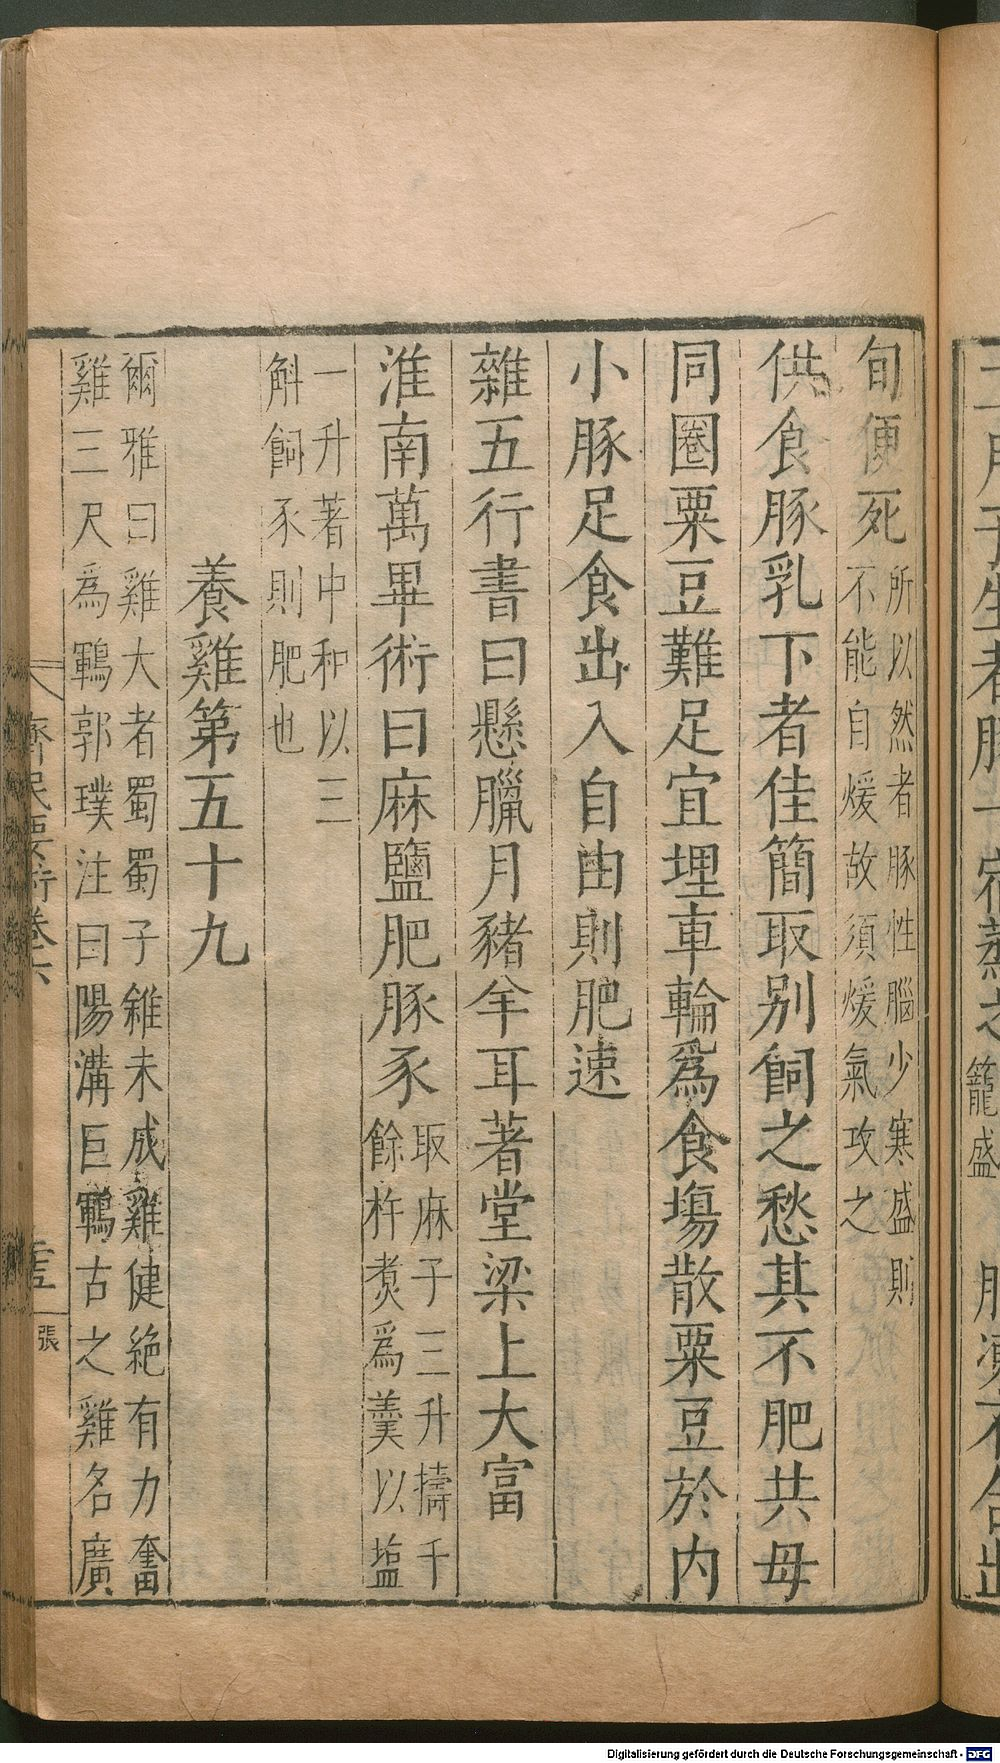 旬便死所以然者豚性腦少寒盛則
不能自煖故須煖氣攻之
供食豚乳下者佳簡取別飼之愁其不肥共母
同圈粟豆難足宜埋車輪為食塲散粟豆於内
小豚足食出入自由則肥速
雜五行書曰懸臘月豬羊耳著堂梁上大富
淮南萬畢術曰麻鹽肥豚豕取麻子三升擣千
餘杵煑爲羹以塩
一升著中和以三
斛飼豕則肥也
養雞第五十九
爾雅曰雞大者蜀蜀子雓未成雞健絶有力奮
雞三尺為鶤郭璞注曰陽溝巨鶤古之雞名廣
齊民要術卷六
張
籠盛
Digitalisierung gefördert durch die Deutsche Forschungsgemeinschaft - DFG